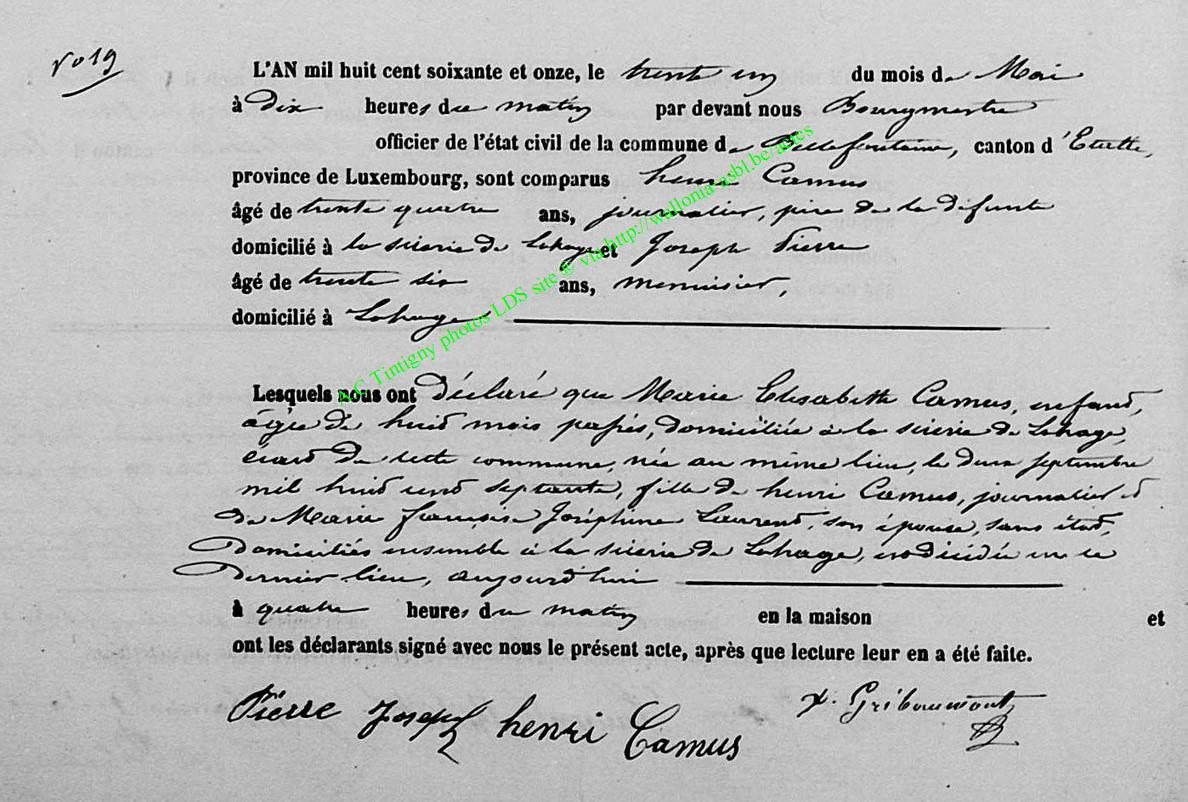 N° 19
L'AN mil huit cent soixante et onze, le trente un du mois de Mai
à dix heures du matin par devant nous Bourgmestre
officier de l'état civil de la commune de Bellefontaine, canton d'Etalle,
province de Luxembourg, sont comparus henri Camus
âgé de trente quatre ans, journalier, père de la défunte
domicilié à la scierie de Lahage et Joseph Pierre
âgé de trente six ans, menuisier,
domicilié à Lahage
Lesquels nous ont déclaré que Marie Elisabeth Camus, enfant,
âgée de huit mois passés, domiciliée à la scierie de Lahage,
écart de cette commune, née au même lieu, le deux septembre
mil huit cent septante, fille de henri Camus, journalier et
de Marie françoise Joséphine Laurent, son épouse, sans état,
Domiciliés ensemble à la scierie de Lahage, est décédée en ce
Dernier lieu, aujourd'hui
à quatre heures du matin en la maison et
ont les déclarants signé avec nous le présent acte, après que lecture leur en a été faite.
Pierre Joseph henri Camus Gribaumont
A.C Tintigny photos LDS site © via http://wallonia-asbl.be/actes